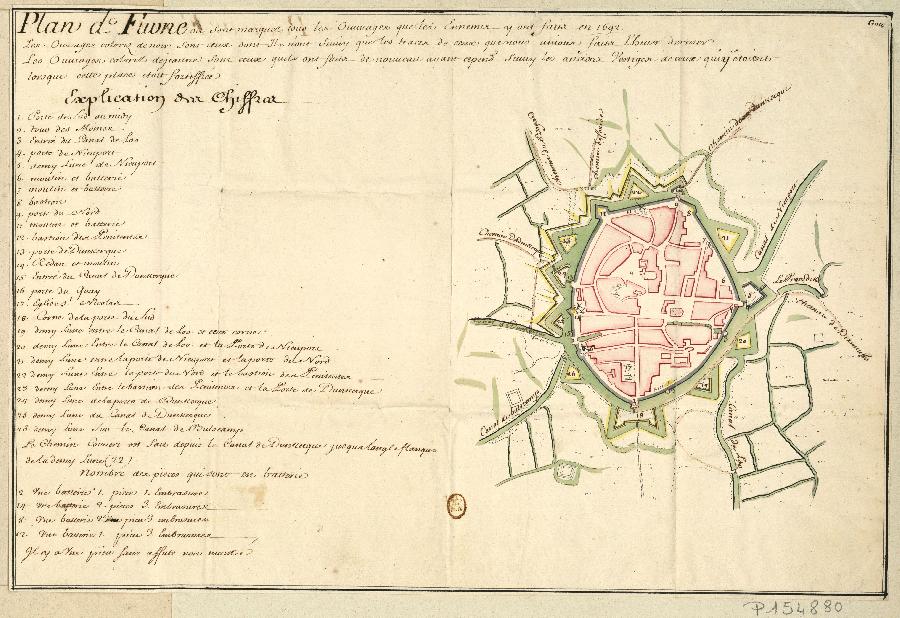 Plan de Furne ou sont marquez tous les Ouvrages que les Ennemis y ont faits en 1692.
Les Ouvrages colorez de noir sont ceux dont Ils n'ont Suivy que les traces de ceux que nous avions faits l'hiver dernier
Les Ouvrages colorez de jaune sont ceux qu'ils ont faits de nouveau ayant Suivy les anciens Vestiges de ceux qui y étoient
lorsque cette place était fortiffiée
Explication des Chiffres
1. Porte du Sud ou midy
2. tour des Moines
3. Entrée du Canal de Loo
4. porte de Nieuport
5. demy Lune de Nieuport
6. moulin et batterie
7. moulin et batterie
8. bastion
9. porte du Nord
11. moulin et batterie
12. bastion des Penitentes
13. porte de Dunkerque
14. Redan et moulin
15. Entrée du Canal de Dunkerque
16. porte du Quay
17. Eglise St Nicolas
18. Corne de la porte du Sud
19. demy Lune entre le Canal de Loo et cette corne
20. demy Lune Entre le Canal de Loo et la Porte de Nieuport
21. demy Lune entre la porte de Nieuport et la porte du Nord
22. demy Lune Entre la porte du Nord et le bastion des Penitentes
23. demy Lune Entre le bastion des Penitentes et la Porte de Dunkerque
24. demy Lune de la porte de Dunkerque
25. demy Lune du Canal de Dunkerque
26. demy Lune sur le Canal de Bulscamp
Le Chemin Couvert est fait depuis le Canal de Dunkerque jusqu'a l'angle flanqué
de la demy Lune (22)
Nombre des pieces qui sont en batterie
2. Une batterie 1. piece 1. Embrasures
14. Une batterie 2. pieces 3. Embrasures
8. Une batterie piece 3 embrasures
12. Une batterie 1. piece 3. Embrasures
Il y a Une piece sans affute non montée
Chemin de Dunkerque
Canal de Nieuport
Canal de bulscamp
Canal de Loo
P154880